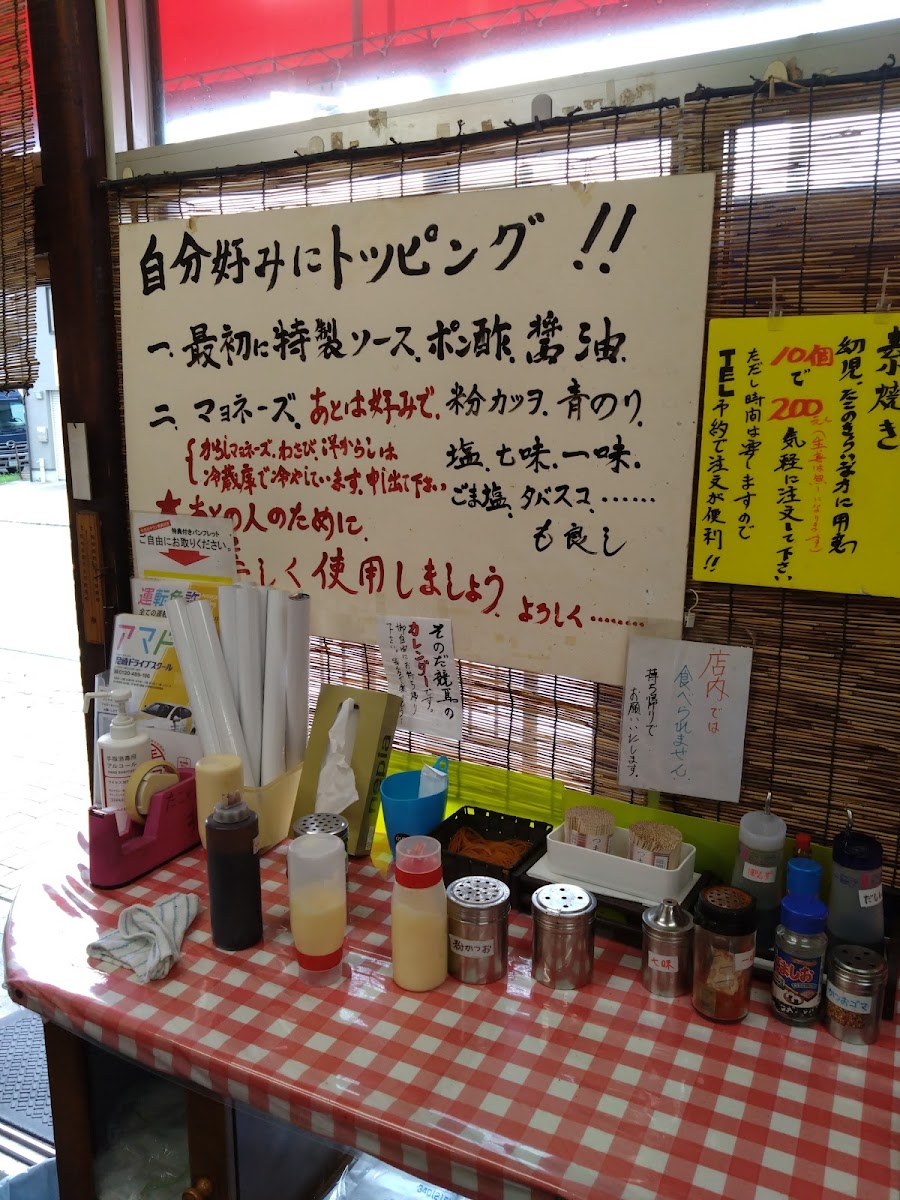 自分好みにトッピング!!
一、最初に特製ソース、ポン酢、醤油、
二、マヨネーズ、あとは好みで、粉カツヲ、青のり、
からしマヨネーズ、わさび、洋からしは
冷蔵庫で冷やしています。申し出て下さい
塩、七味、一味、
ごま塩、タバスコ、……
も良し
★あとの人のために
しく使用しましょう、よろしく………
素焼き
幼児、たこのきらいな方に用意
10個で200
気軽に注文して下さい
ただし時間は要しますので
TEL予約で注文が便利!!
特典付きパンフレット
ご自由にお取りください。
運転免許
アマ
尼崎ドライブスクール
そのだ競馬の
カレンダーです。
店内では
食べられません。
持ち帰りで
お願いいたします。
手指消毒用
アルコール
nepia
粉かつお
七味
一味
ぽんず
だし
かつおゴマ